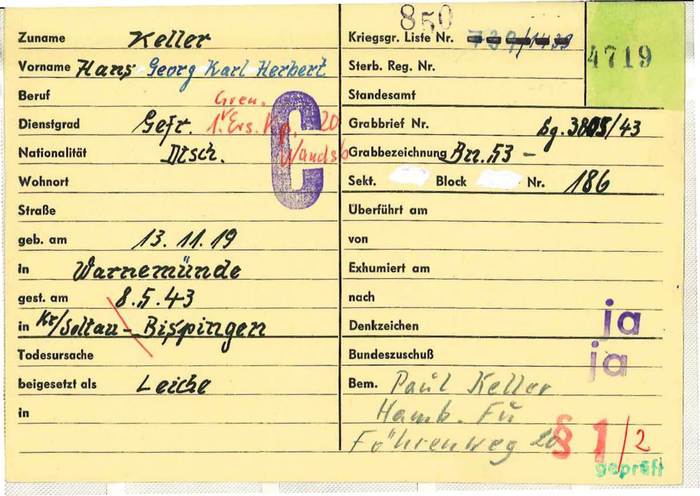 850
Zuname Keller
Vorname Hans Georg Karl Herbert
Beruf Gren.
Dienstgrad Gefr. 1. Ers. Kp. 20
Nationalität Dtsch. Wandsb
C
Wohnort
Straße
geb. am 13.11.19
in Warnemünde
gest. am 8.5.43
in Kr/Soltau - Bispingen
Todesursache
beigesetzt als Leiche
in
Kriegsgr. Liste Nr.
4719
Sterb. Reg. Nr.
Standesamt
Grabbrief Nr.
Grabbezeichnung Bn. 53 -
Sekt. Block Nr. 186
Überführt am
von
Exhumiert am
nach
Denkzeichen ja
Bundeszuschuß ja
Bem. Paul Keller
Hamb. Fu
Föhrenweg 20
§ 1/2
geprüft